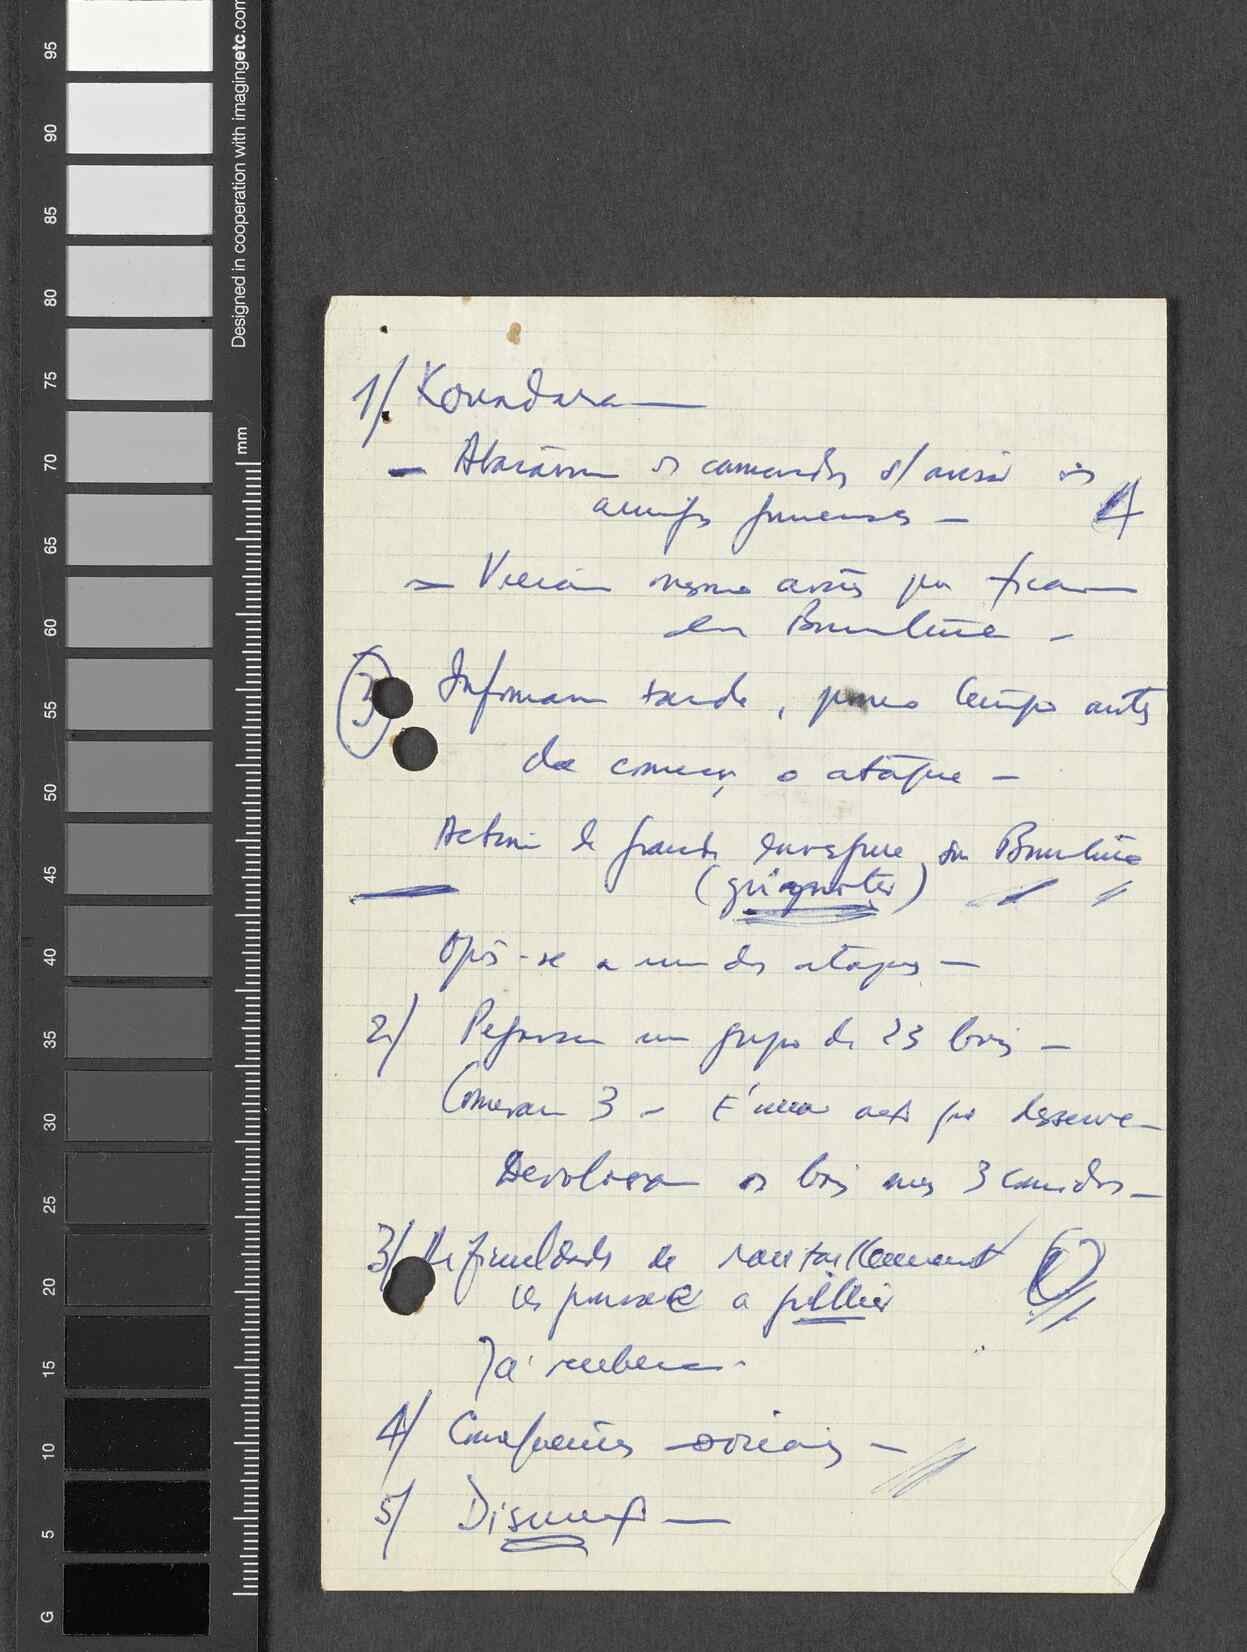 95
90
85
80
75
70
65
60
55
50
45
40
35
30
25
20
15
10
5
G
Designed in cooperation with imagingetc.com
mm
1/ Koundara —
— Atacaram os camaradas s/ aviso aos
amigos guineenses — 4
— mesmo antes para ficar
em Bruntuma —
3 Informaram tarde, pouco tempo antes
de começar o ataque —
Action de grande envergure sur Bruntuma
(grignoter)
Opôs-se a um dos ataques —
2/ Pegaram um grupo de 23 bois —
Comeram 3 — É uma acção que desserve —
Devolveram os bois menos 3 comidos —
3/ Dificuldades de ravitaillement
les pousse a pillier
Já receberam.
4/ Consequências sociais —
5/ Discussão —